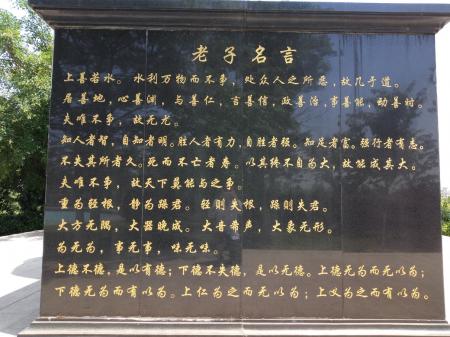 老子名言
上善若水。水利万物而不争，处众人之所恶，故几于道。
居善地，心善渊，与善仁，言善信，政善治，事善能，动善时。
夫唯不争，故无尤。
知人者智，自知者明。胜人者有力，自胜者强。知足者富。强行者有志。
不失其所者久。死而不亡者寿。以其终不自为大，故能成其大。
夫唯不争，故天下莫能与之争。
重为轻根，静为躁君。轻则失根，躁则失君。
大方无隅，大器晚成。大音希声，大象无形。
为无为，事无事，味无味。
上德不德，是以有德；下德不失德，是以无德。上德无为而无以为；
下德无为而有以为。上仁为之而无以为；上义为之而有以为。